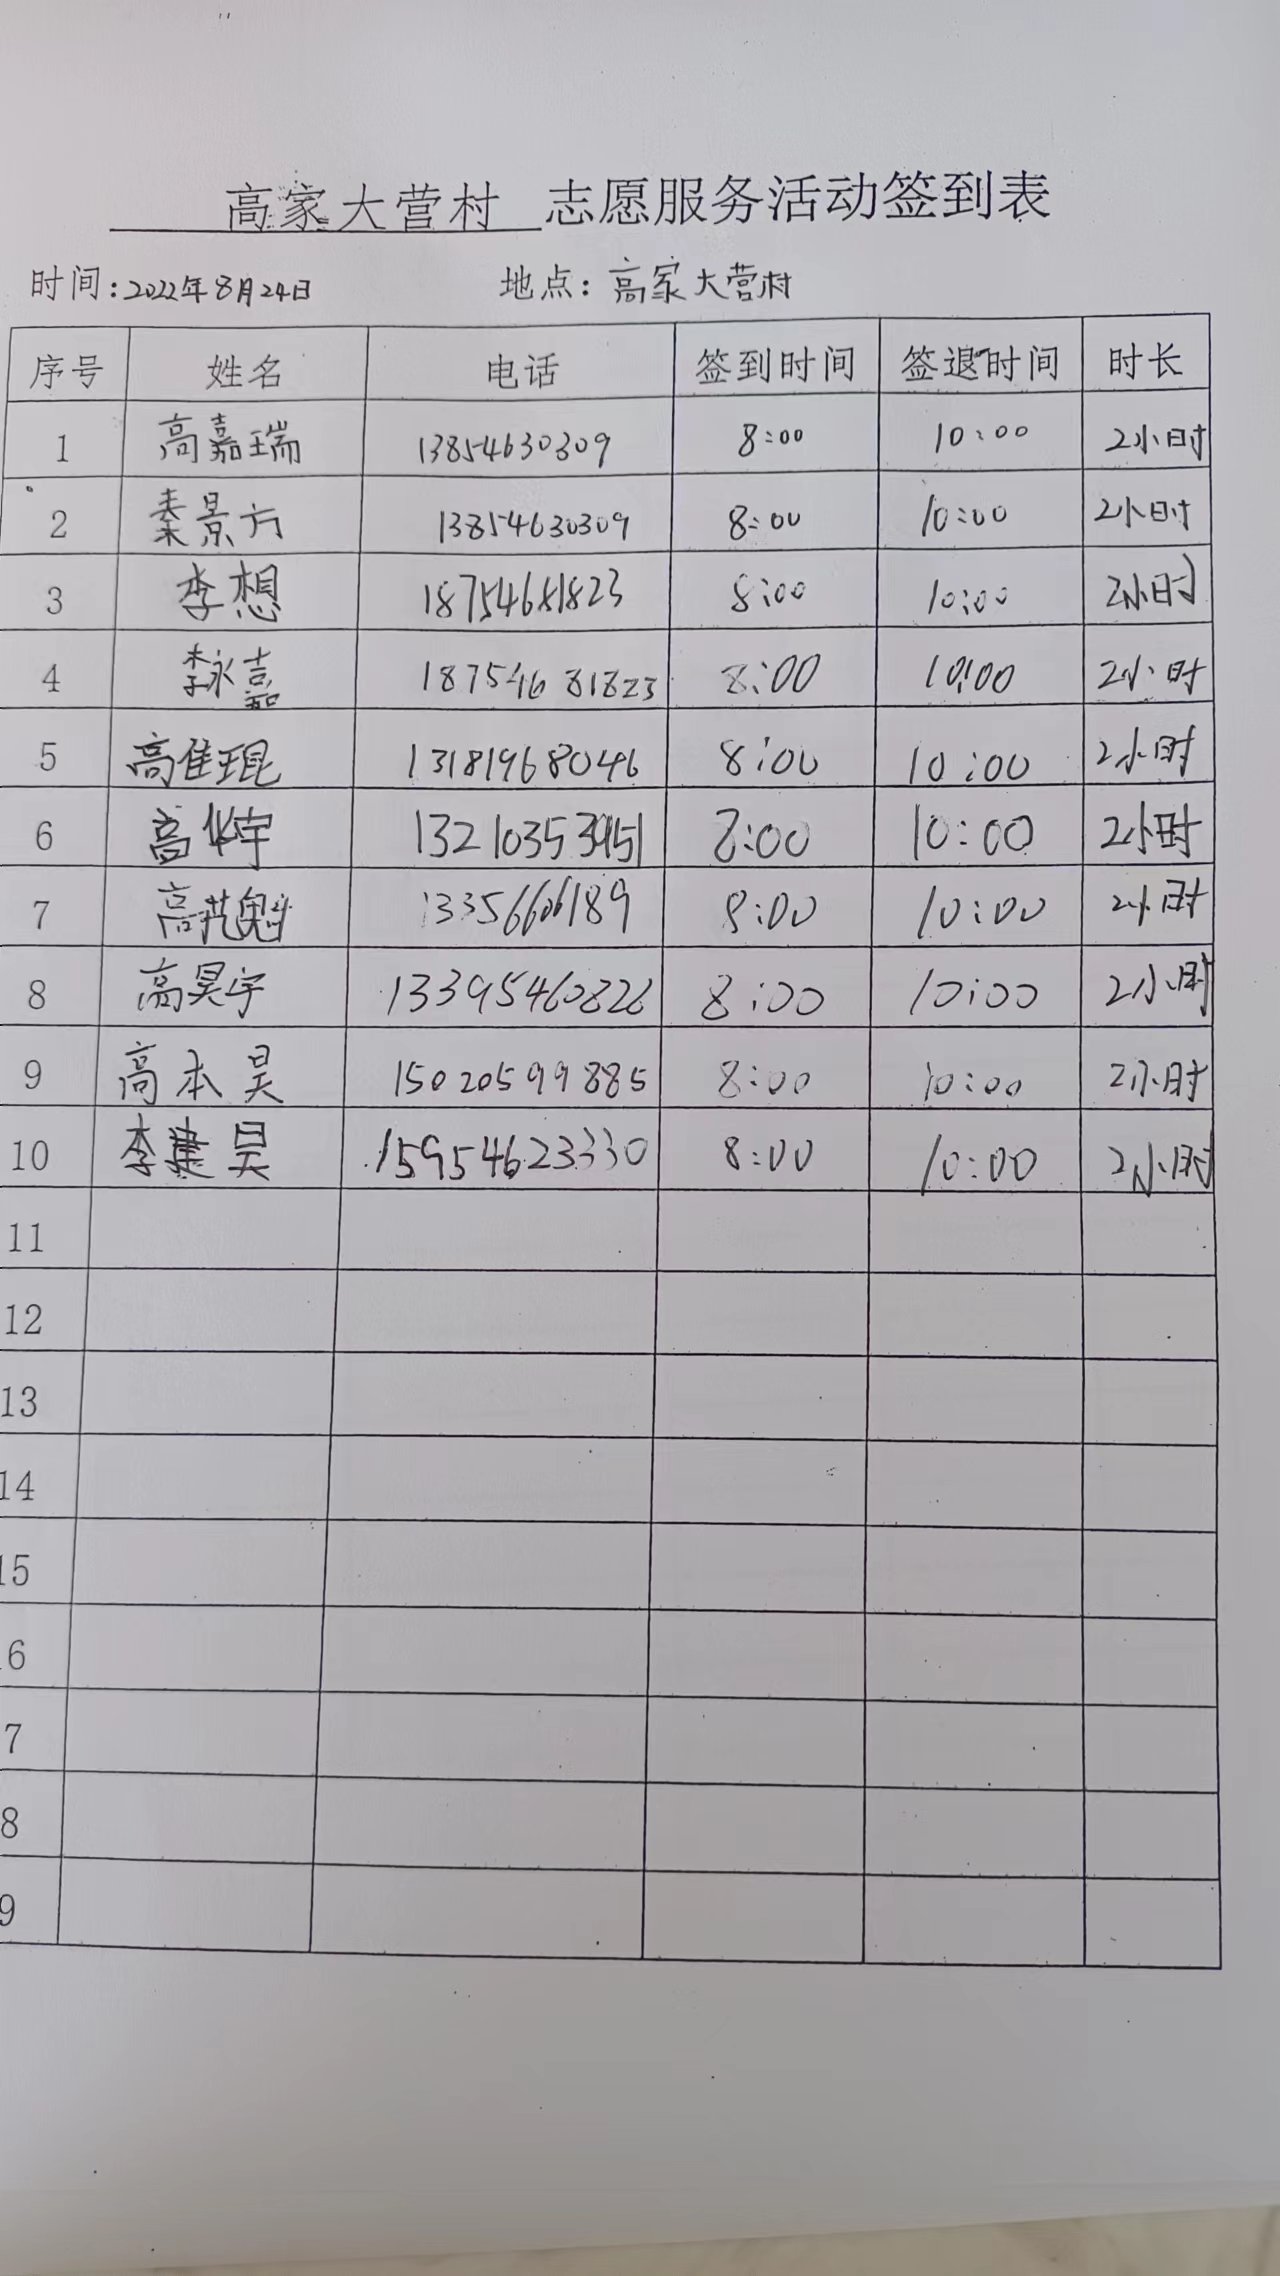 高家大营村 志愿服务活动签到表
时间:2022年8月24日 地点:高家大营村
序号 姓名 电话 签到时间 签退时间 时长
1 高嘉瑞 13854630309 8:00 10:00 2小时
2 秦景方 13854630309 8:00 10:00 2小时
3 李想 18754681823 8:00 10:00 2小时
4 李永嘉 18754681823 8:00 10:00 2小时
5 高佳琨 13181968046 8:00 10:00 2小时
6 高华宇 8:00 10:00 2小时
7 高艺魁 13356606189 8:00 10:00 2小时
8 高昊宇 13395460826 8:00 10:00 2小时
9 高本昊 15020599885 8:00 10:00 2小时
10 李建昊 15954623330 8:00 10:00 2小时
11
12
13
14
15
6
7
8
9